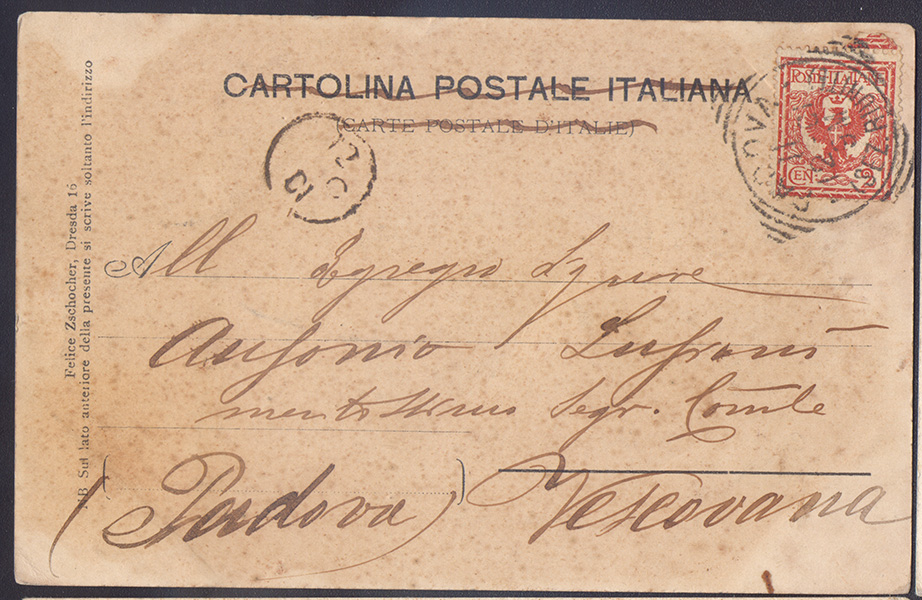 CARTOLINA POSTALE ITALIANA
(CARTE POSTALE D'ITALIE)
POSTE ITALIANE
CEN. 2
All Egregio Signore
Ausonio
Segr. Comle
(Padova) Vescovana
Felice Zschocher, Dresda 16
NB Sul lato anteriore della presente si scrive soltanto l'indirizzo